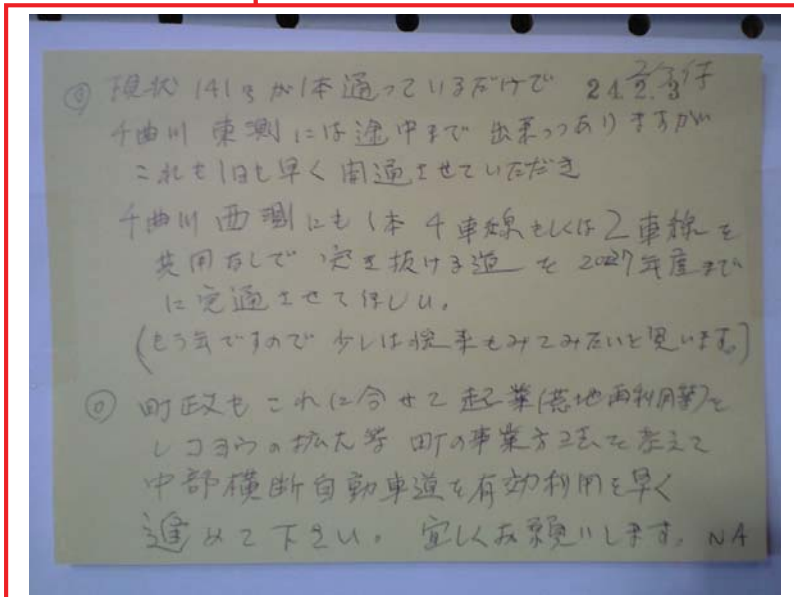 ◎ 現状 141号が1本通っているだけで 24.2.3
千曲川 東側には途中まで 出来つつありますが
これも1日も早く 開通させていただき
千曲川 西側にも1本 4車線もしくは2車線を
共用なしで 突き抜ける道を 2027年度まで
に完通させてほしい。
(もう年ですので 少しは従来もみてみたいと思います。)
◎ 町政も これに合せて 起業(荒地再利用等)を
レコヨウの拡大等 町の事業方法を考えて
中部横断自動車道を有効利用を早く
進めて下さい。 宜しくお願いします。 NA